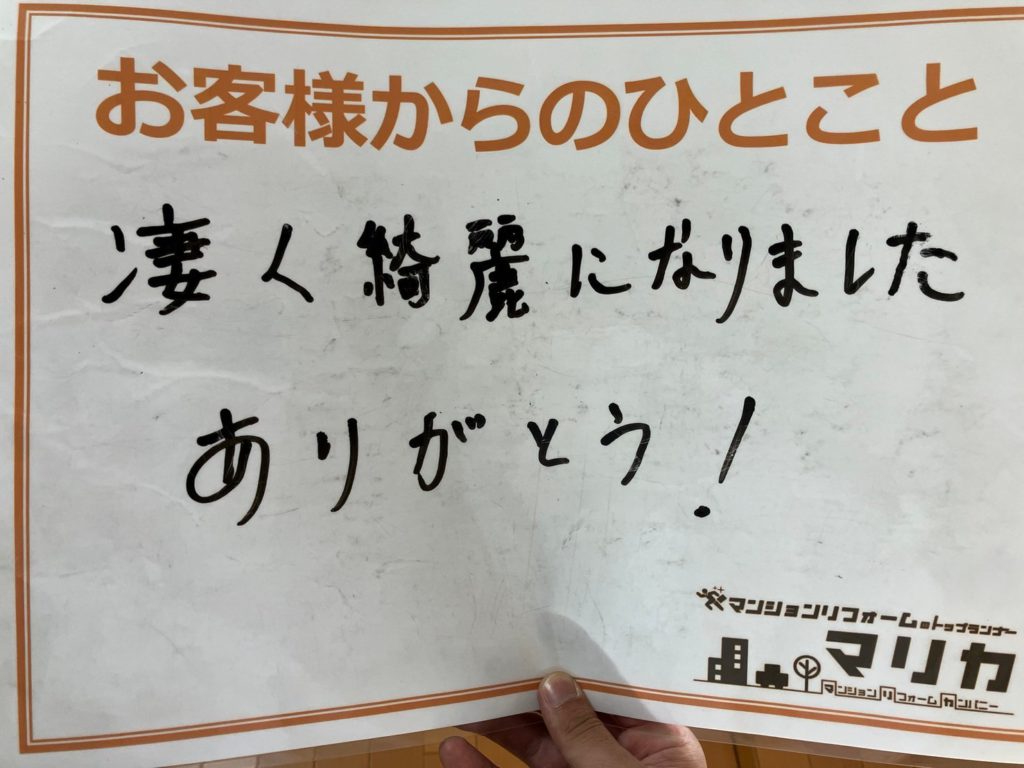 お客様からのひとこと
凄く綺麗になりました
ありがとう!
マンションリフォームのトップランナー
マリカ
マンションリフォームカンパニー